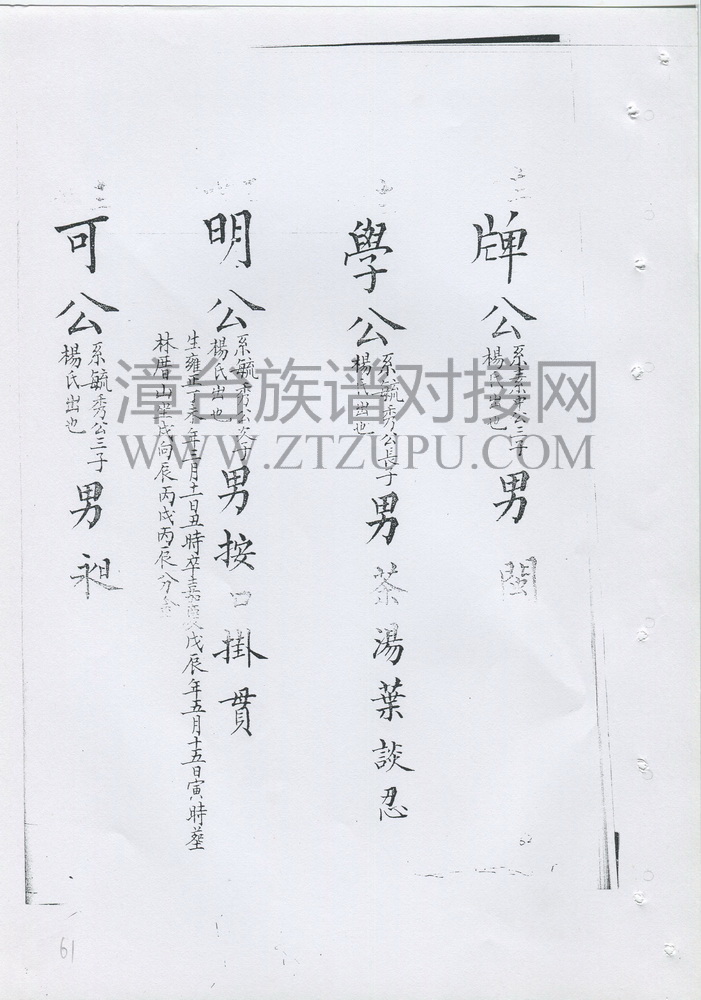 牌公
系素中公三子
楊氏出也
男
閩
學公
系毓秀公長子
楊氏出也
男
茶湯葉談忍
明公
系毓秀公次子
楊氏出也
男按口掛貫
生雍正丁未年三月十一日丑時卒嘉慶戊辰年五月十五日寅時葬
林厝山坐戌向辰丙戌丙辰分金
可公
系毓秀公三子
楊氏出也
男
漳台族谱对接网
WWW.ZTZUPU.COM
61